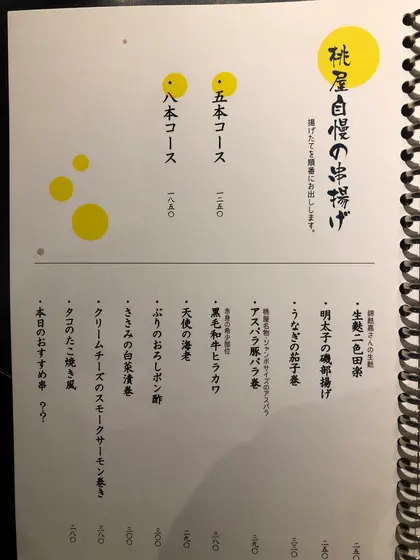 桃屋自慢の串揚げ
揚げたてを順番にお出しします。
・五本コース 一二五〇
・八本コース 一八五〇
錦麩嘉さんの生麩
・生麩二色田楽 二五〇
・明太子の磯部揚げ 二五〇
・うなぎの茄子巻 三三〇
桃屋名物・ジャンボサイズのアスパラ
・アスパラ豚バラ巻 三九〇
赤身の希少部位
・黒毛和牛ヒラカワ 三八〇
・天使の海老 二九〇
・ぶりのおろしポン酢 三〇〇
・ささみの白菜漬巻 三〇〇
・クリームチーズのスモークサーモン巻き 三八〇
・タコのたこ焼き風 二八〇
・本日のおすすめ串 ??